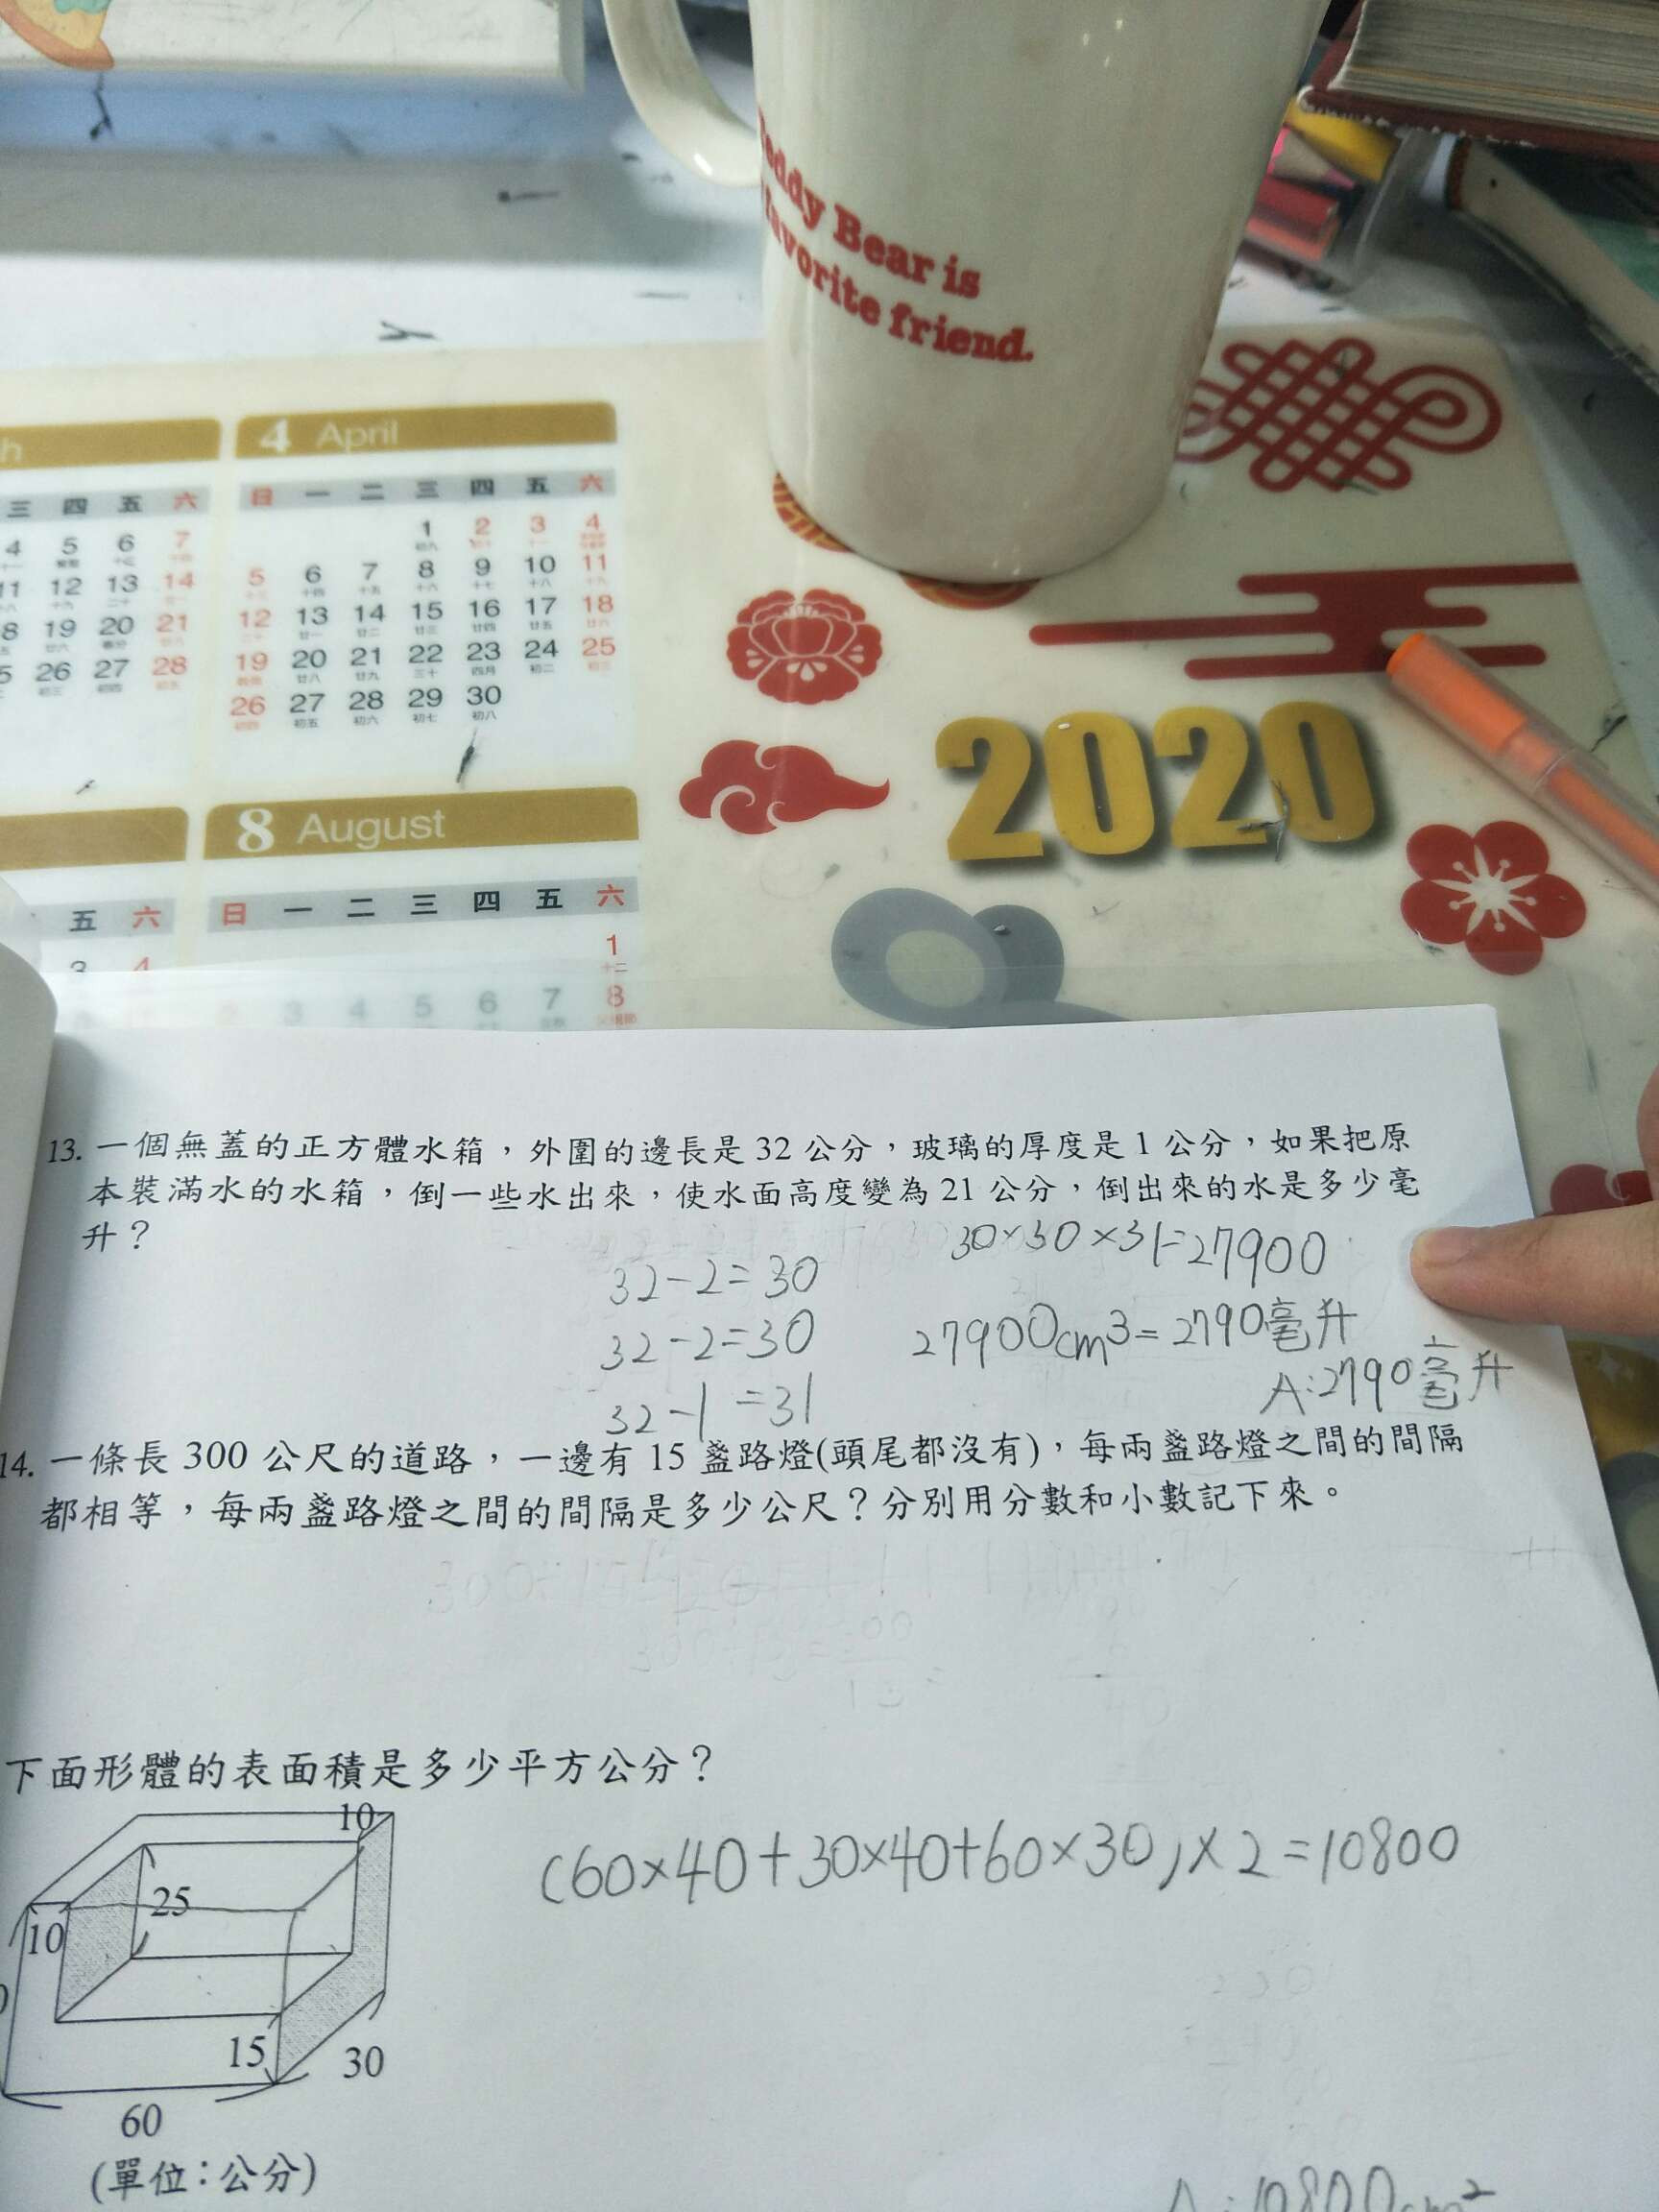 eddy Bear is
favorite friend.
h
4 April
三 四 五 六
日 一 二 三 四 五 六
4 5 6 7
1 2 3 4
11 12 13 14
5 6 7 8 9 10 11
8 19 20 21
12 13 14 15 16 17 18
5 26 27 28
19 20 21 22 23 24 25
26 27 28 29 30
2020
8 August
五 六
日 一 二 三 四 五 六
3 4
1
3 4 5 6 7 8
13. 一個無蓋的正方體水箱，外圍的邊長是 32 公分，玻璃的厚度是 1 公分，如果把原
本裝滿水的水箱，倒一些水出來，使水面高度變為 21 公分，倒出來的水是多少毫
升？
32-2=30
32-2=30
32-1=31
30×30×31=27900
27900cm3=2790毫升
A:2790毫升
14. 一條長 300 公尺的道路，一邊有 15 盞路燈(頭尾都沒有)，每兩盞路燈之間的間隔
都相等，每兩盞路燈之間的間隔是多少公尺？分別用分數和小數記下來。
下面形體的表面積是多少平方公分？
(60×40+30×40+60×30)×2=10800
10
25
10
15
30
60
(單位：公分)
A:10800cm²